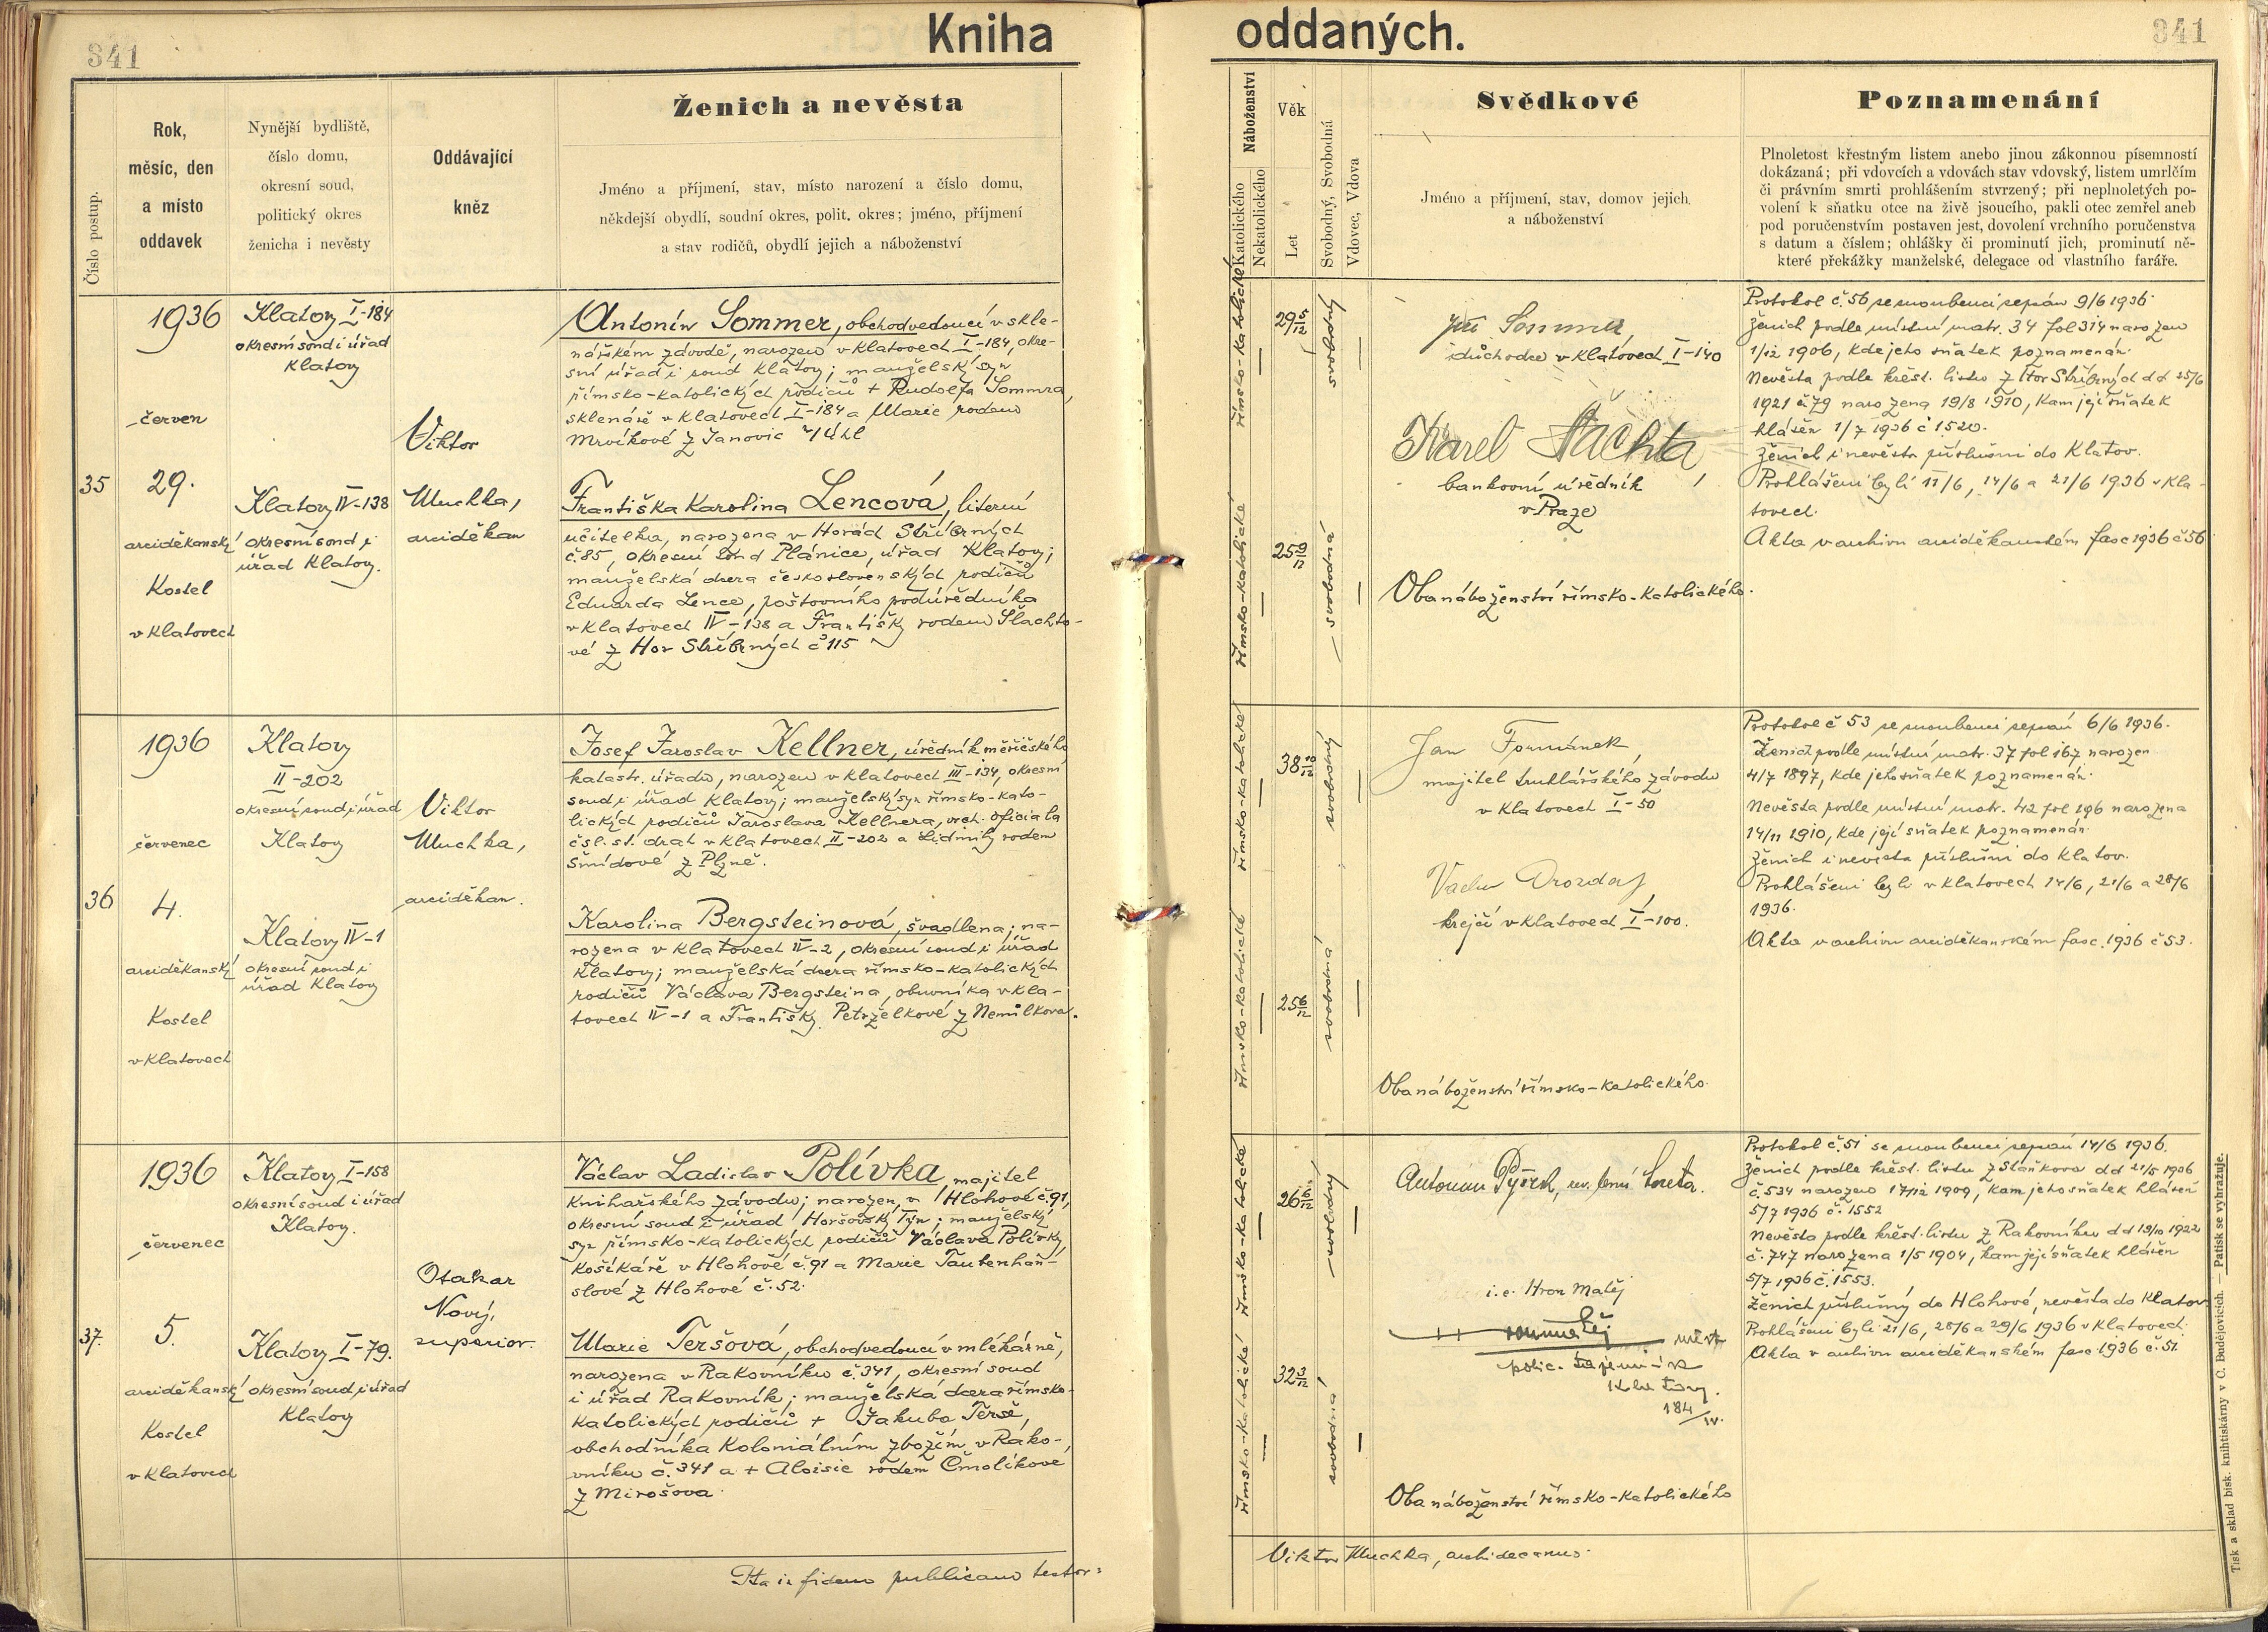 341
Kniha
oddaných.
341
Číslo postup.
Rok,
měsíc, den
a místo
oddavek
Nynější bydliště,
číslo domu,
okresní soud,
politický okres
ženicha i nevěsty
Oddávající
kněz
Ženich a nevěsta
Jméno a příjmení, stav, místo narození a číslo domu,
někdejší obydlí, soudní okres, polit. okres; jméno, příjmení
a stav rodičů, obydlí jejich a náboženství
Náboženství
Katolického
Nekatolického
Věk
Let
Svobodný, Svobodná
Vdovec, Vdova
Svědkové
Jméno a příjmení, stav, domov jejich
a náboženství
Poznamenání
Plnoletost křestným listem anebo jinou zákonnou písemností
dokázaná; při vdovcích a vdovách stav vdovský, listem umrlčím
či právním smrti prohlášením stvrzený; při neplnoletých po-
volení k sňatku otce na živě jsoucího, pakli otec zemřel aneb
pod poručenstvím postaven jest, dovolení vrchního poručenstva
s datum a číslem; ohlášky či prominutí jich, prominutí ně-
které překážky manželské, delegace od vlastního faráře.
35
1936
červen
29.
arciděkanský
Kostel
v Klatovech
Klatovy I-184
okresní soud i úřad
Klatovy
Klatovy IV-138
okresní soud i
úřad Klatovy.
Viktor
Muchka,
arciděkan
Antonín Sommer, obchodvedoucí v skle-
nářském závodě, narozen v Klatovech I-184, okre-
sní úřad i soud Klatovy; manželský syn
římsko-katolických rodičů + Rudolfa Sommra,
sklenáře v Klatovech I-184 a Marie rodem
Mrvíkové z Janovic n/Úhl
Františka Karolina Lencová, literní
učitelka, narozena v Horách Stříbrných
č.85, okresní soud Plánice, úřad Klatovy;
manželská dcera československých rodičů
Eduarda Lence, poštovního podúředníka
v Klatovech IV-138 a Františky rodem Šlachto-
vé z Hor Stříbrných č 115
římsko-katolické
římsko-katolické
29 5/12
25 9/12
svobodný
svobodná
Jiří Sommer,
důchodce v Klatovech I-140
Karel Šlachta,
bankovní úředník
v Praze
Oba náboženství římsko-katolického.
Protokol č. 56 se snoubenci sepsán 9/6 1936.
Ženich podle místní matr. 34 fol 314 narozen
1/12 1906, kde jeho sňatek poznamenán.
Nevěsta podle křest. listu z Hor Stříbrných dd 25/6
1921 č 79 narozena 19/8 1910, kam její sňatek
hlášen 1/7 1936 č 1520.
Ženich i nevěsta příslušni do Klatov.
Prohlášeni byli 11/6, 14/6 a 21/6 1936 v Kla-
tovech.
Akta v archivu arciděkanském fasc 1936 č 56
36
1936
červenec
4.
arciděkanský
Kostel
v Klatovech
Klatovy
II-202
okresní soud i úřad
Klatovy
Klatovy IV-1
okresní soud i
úřad Klatovy
Viktor
Muchka,
arciděkan.
Josef Jaroslav Kellner, úředník měřičského
katastr. úřadu, narozen v Klatovech III-134, okresní
soud i úřad Klatovy; manželský syn římsko-kato-
lických rodičů Jaroslava Kellnera, vrch. oficiala
čsl. st. drah v Klatovech II-202 a Lidmily rodem
Šmídové z Plzně.
Karolina Bergsteinová, švadlena; na-
rozena v Klatovech IV-2, okresní soud i úřad
Klatovy; manželská dcera římsko-katolických
rodičů Václava Bergsteina, obuvníka v Kla-
tovech IV-1 a Františky Petrželkové z Nemilkova.
římsko-katolické
římsko-katolické
38 10/12
25 6/12
svobodný
svobodná
Jan Formánek,
majitel truhlářského závodu
v Klatovech I-50
krejčí v Klatovech I-100.
Oba náboženství římsko-katolického.
Protokol č 53 se snoubenci sepsán 6/6 1936.
Ženich podle místní matr. 37 fol 167 narozen
4/7 1897, kde jeho sňatek poznamenán.
Nevěsta podle místní matr. 42 fol 196 narozena
14/11 1910, kde její sňatek poznamenán.
Ženich i nevěsta příslušni do Klatov.
Prohlášeni byli v Klatovech 14/6, 21/6 a 28/6
1936.
Akta v archivu arciděkanském fasc. 1936 č 53.
37.
1936
červenec
5.
arciděkanský
Kostel
v Klatovech
Klatovy I-158
okresní soud i úřad
Klatovy.
Klatovy I-79.
okresní soud i úřad
Klatovy
Otakar
Nový,
superior.
Václav Ladislav Polívka, majitel
knihařského závodu; narozen, v Hlohové č.91,
okresní soud i úřad Horšovský Týn; manželský
syn římsko-katolických rodičů Václava Polívky,
košíkáře v Hlohové č.91 a Marie Tautenhan-
slové z Hlohové č.52.
Marie Teršová, obchodvedoucí v mlékárně,
narozena v Rakovníku č.341, okresní soud
i úřad Rakovník; manželská dcera římsko-
katolických rodičů + Jakuba Terše,
obchodníka koloniálním zbožím v Rako-
vníku č.341 a + Aloisie rodem Čmolíkové
z Mirošova.
římsko-katolické
římsko-katolické
26 6/12
32 3/12
svobodný
svobodná
i.e. Hron Matěj
polic.
Klatovy.
184/IV.
Oba náboženství římsko-katolického
Protokol č.51 se snoubenci sepsán 14/6 1936.
Ženich podle křest. listu z Staňkova dd 21/5 1936
č.534 narozen 17/12 1909, kam jeho sňatek hlášen
5/7 1936 č. 1552
Nevěsta podle křest. listu z Rakovníku dd 19/10 1922
č. 747 narozena 1/5 1904, kam její sňatek hlášen
5/7 1936 č. 1553.
Ženich příslušný do Hlohové, nevěsta do Klatov
Prohlášeni byli 21/6, 28/6 a 29/6 1936 v Klatovech.
Akta v archivu arciděkanském fasc. 1936 č. 51.
Ita in fidem publicam testor:
Viktor Muchka, archidecanus.
Tisk a sklad bisk. knihtiskárny v Č. Budějovicích. — Patisk se vyhražuje.